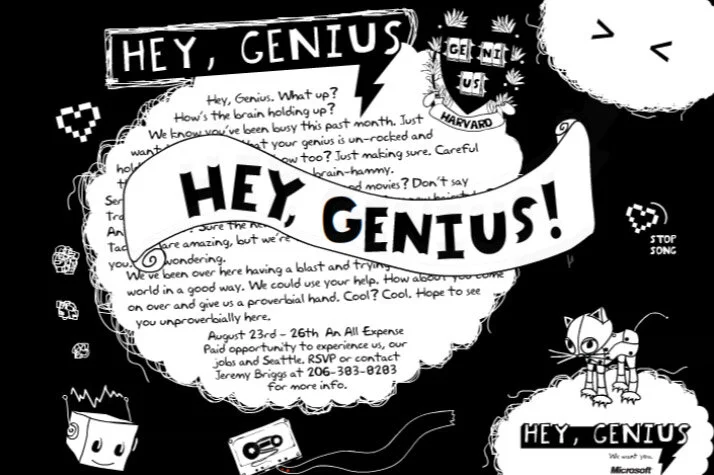 HEY, GENIUS
GE NI
US
HARVARD
Hey, Genius. What up?
How's the brain holding up?
We know you've been busy this past month. Just
that your genius is un-rocked and
too? Just making sure. Careful
brain-hammy.
movies? Don't say
HEY, GENIUS!
Sure the
are amazing, but we're
you. wondering.
We've been over here having a blast and trying
world in a good way. We could use your help. How about you come
on over and give us a proverbial hand. Cool? Cool. Hope to see
you unproverbially here.
August 23rd - 26th An All Expense
Paid opportunity to experience us, our
jobs and Seattle. RSVP or contact
Jeremy Briggs at 206-303-0203
for more info.
STOP
SONG
HEY, GENIUS
We want you.
Microsoft